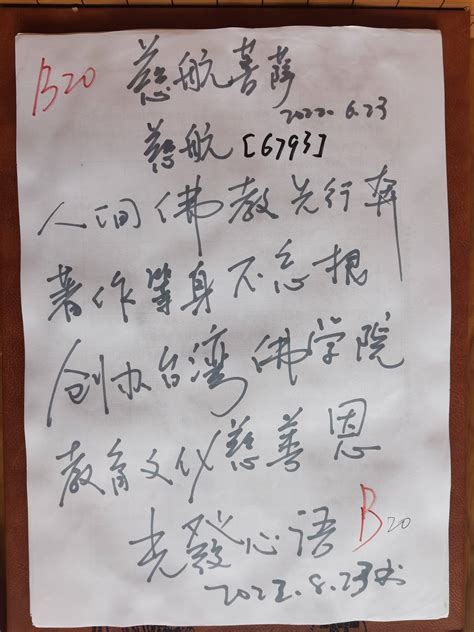 B20 慈航菩萨
2022.6.23
慈航[6793]
人间佛教先行奔
著作等身不忘根
创办台湾佛学院
教育文化慈善恩
光發心语 B20
2022.8.23书